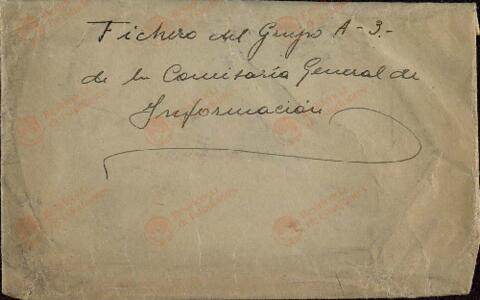 Fichero del Grupo A-3.-
de la Comisaría General de
Información